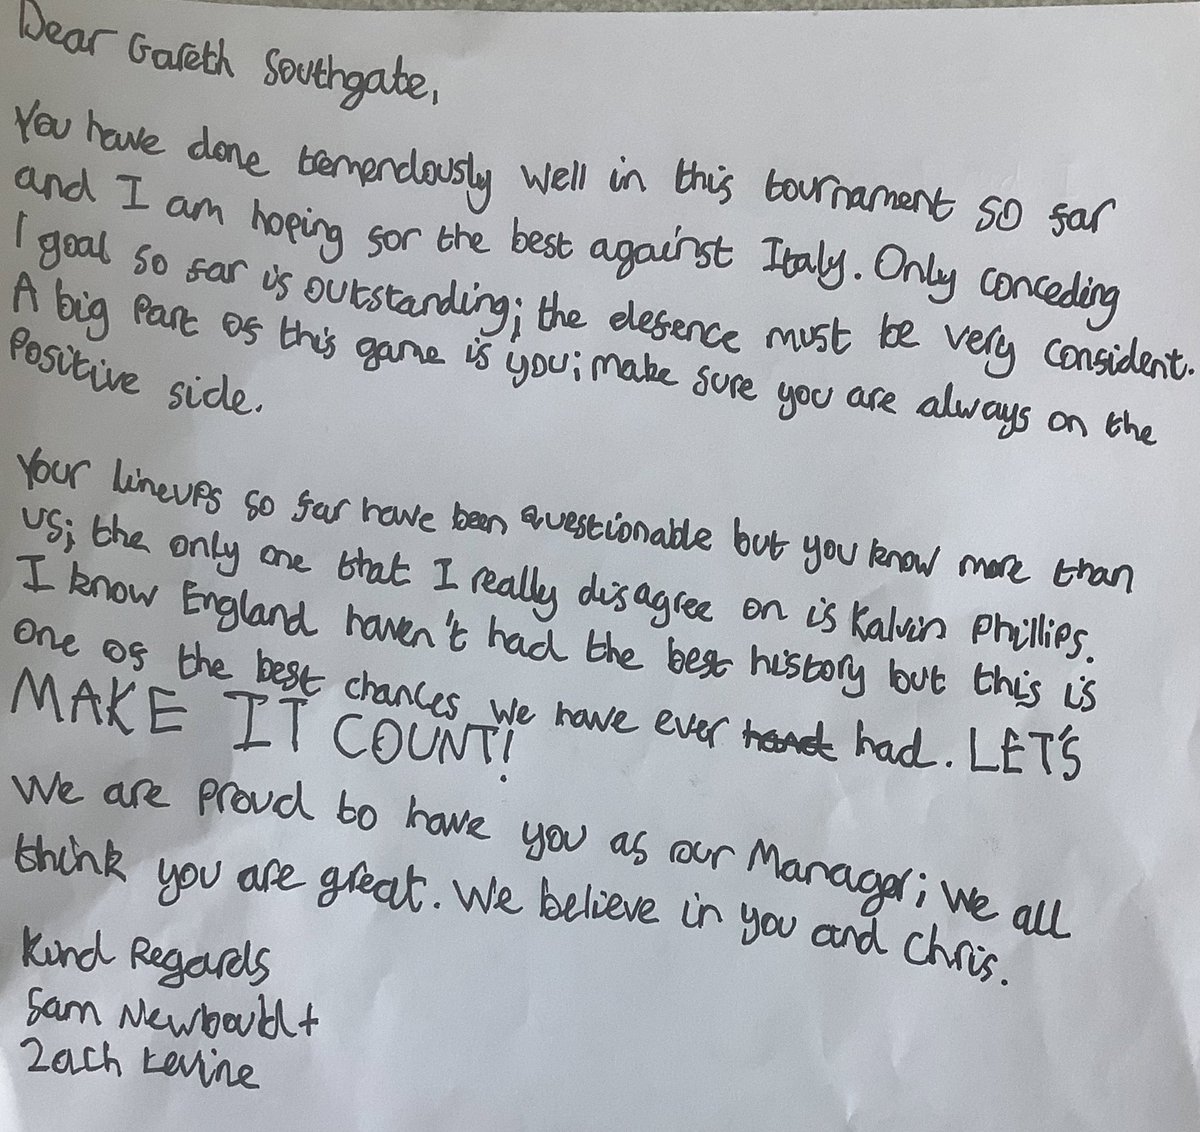 Dear Gareth Southgate,
You have done tremendously well in this tournament so far
and I am hoping for the best against Italy. Only conceding
1 goal so far is outstanding; the defence must be very confident.
A big part of this game is you; make sure you are always on the
Positive side.
Your lineups so far have been questionable but you know more than
us; the only one that I really disagree on is Kalvin Phillips.
I know England haven't had the best history but this is
one of the best chances we have ever had. LET'S
MAKE IT COUNT!
We are proud to have you as our Manager; we all
think you are great. We believe in you and Chris.
Kind Regards
Sam Newbould +
Zach Levine